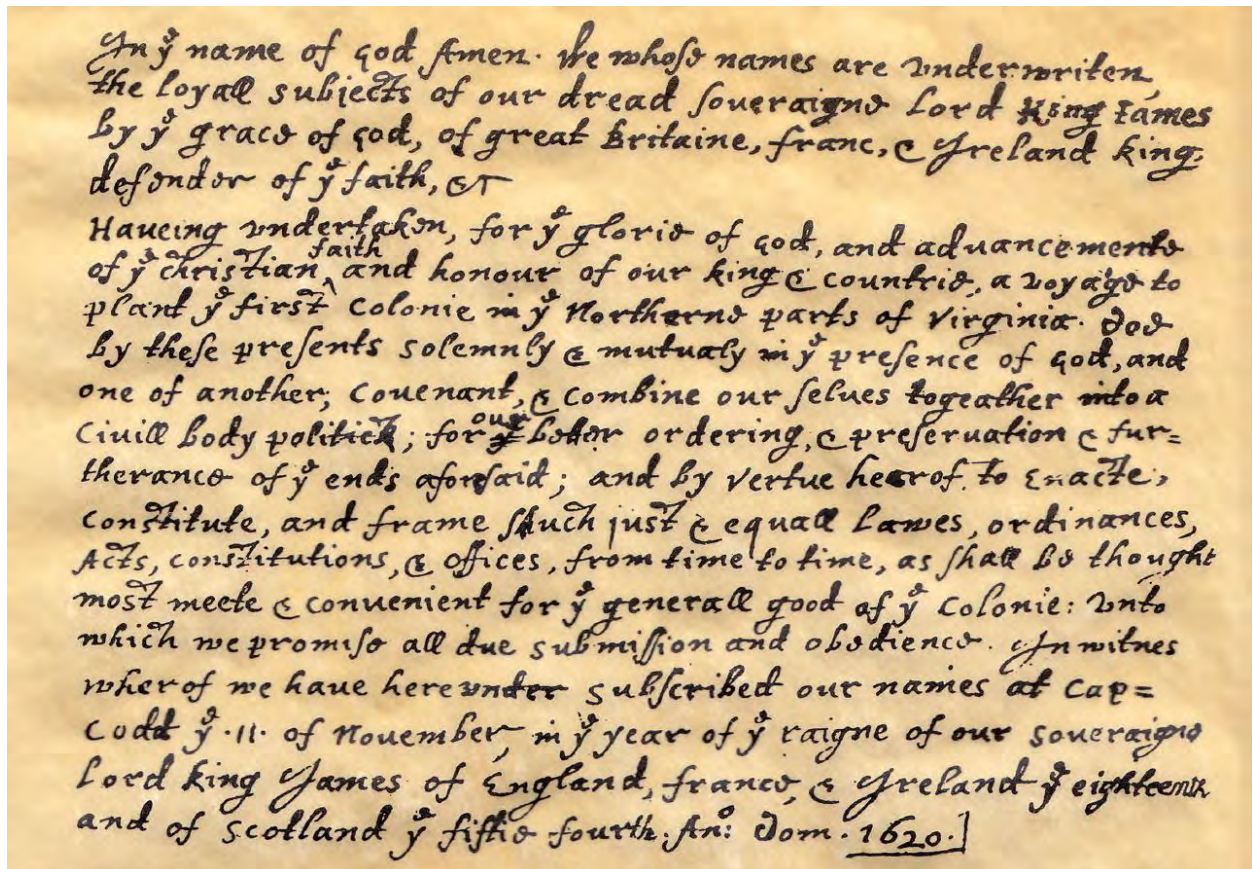 In yᵉ name of god Amen. We whose names are vnderwriten,
the loyall subjects of our dread soueraigne Lord King Iames
by yᵉ grace of god, of great Britaine, franc, & Ireland king,
defender of yᵉ faith, &c
Haueing vndertaken, for yᵉ glorie of god, and aduancemente
of yᵉ christian ^faith and honour of our king & countrie, a voyage to
plant yᵉ first colonie in yᵉ Northerne parts of Virginia. doe
by these presents solemnly & mutualy in yᵉ presence of god, and
one of another; couenant, & combine our selues togeather into a
Ciuill body politick; for our better ordering, & preseruation & fur=
therance of yᵉ ends aforesaid; and by vertue hearof to Enacte,
constitute, and frame shuch just & equall Lawes, ordinances,
Acts, constitutions, & offices, from time to time, as shall be thought
most meete & conuenient for yᵉ generall good of yᵉ colonie: vnto
which we promise all due submission and obedience. In witnes
wherof we haue herevnder subscribed our names at Cap=
Codd yᵉ .11. of Nouember, in yᵉ year of yᵉ raigne of our soueraigne
Lord king James of England, france, & Ireland yᵉ eighteenth
and of Scotland yᵉ fiftie fourth. Anᵒ: Dom. 1620.]